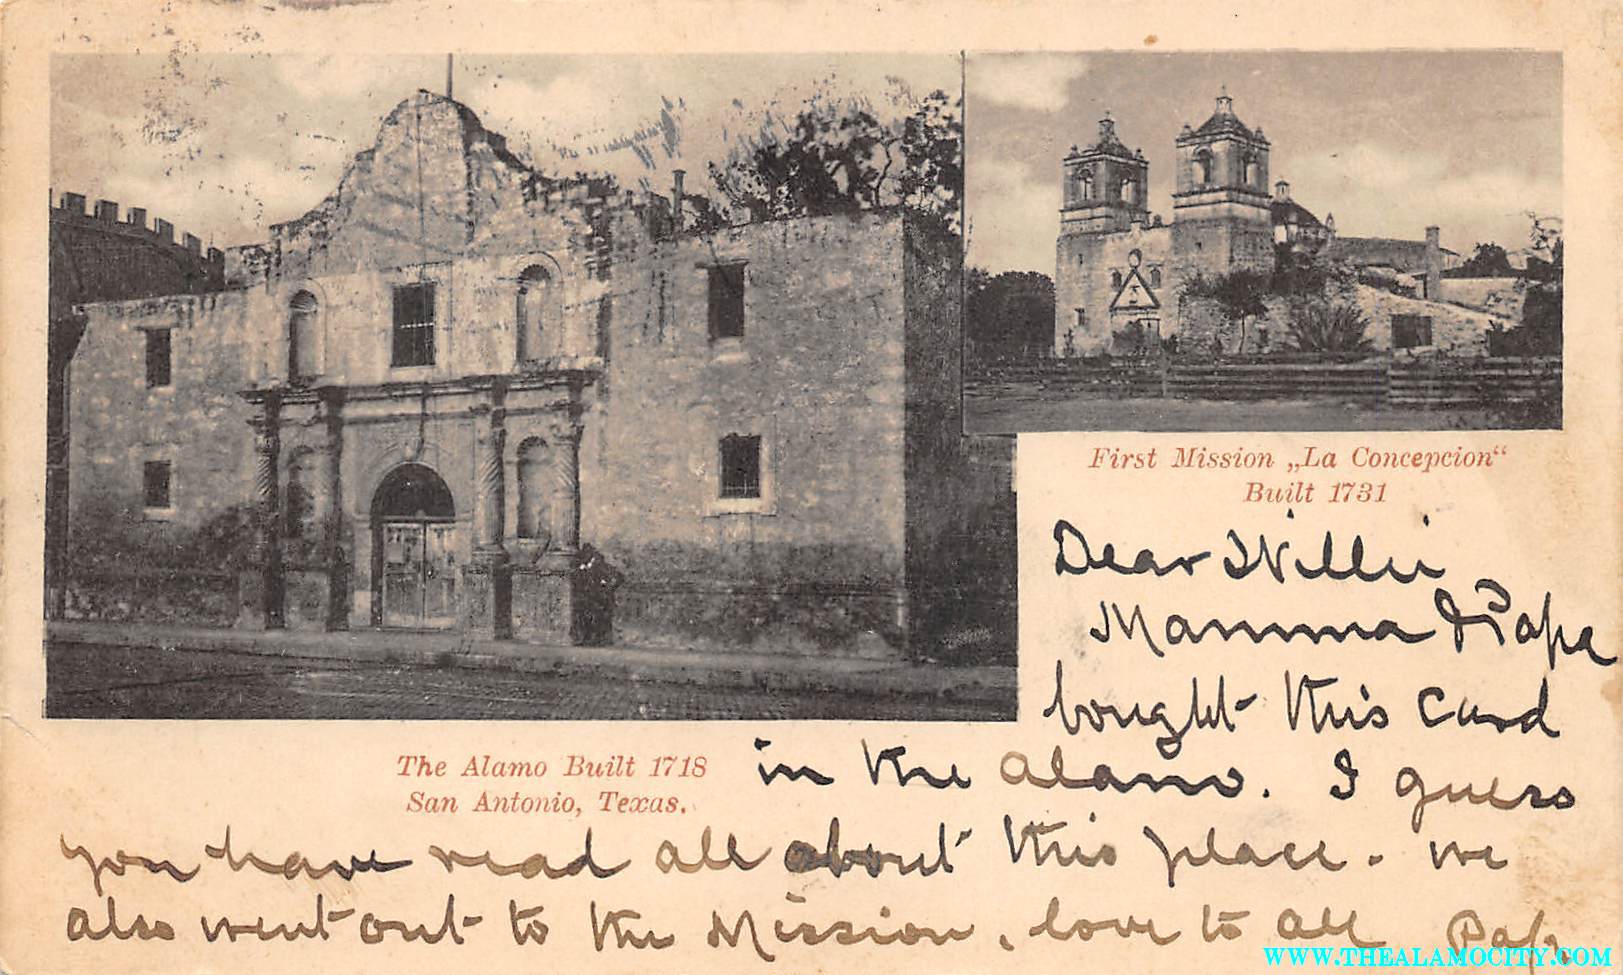 First Mission „La Concepcion“
Built 1731
The Alamo Built 1718
San Antonio, Texas.
Dear Willie
Mamma & Papa
bought this card
in the Alamo. I guess
you have read all about this place. we
also went out to the Mission. love to all Papa
WWW.THEALAMOCITY.COM